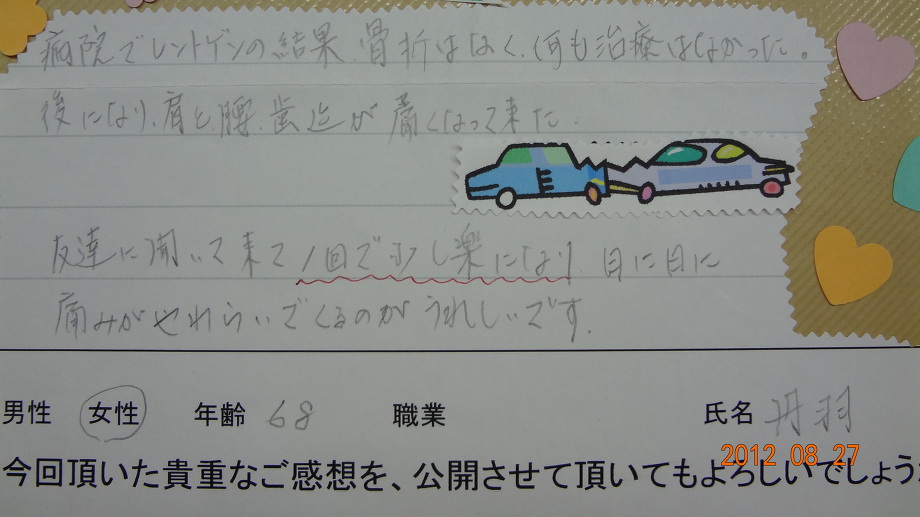 病院でレントゲンの結果、骨折はなく、何も治療はなかった。
後になり、肩と、腰、歯迄が痛くなって来た。
友達に聞いて来て1回で少し楽になり 日に日に
痛みがやわらいでくるのがうれしいです。
男性 女性 年齢 68 職業 氏名 丹羽
2012 08 27
今回頂いた貴重なご感想を、公開させて頂いてもよろしいでしょう